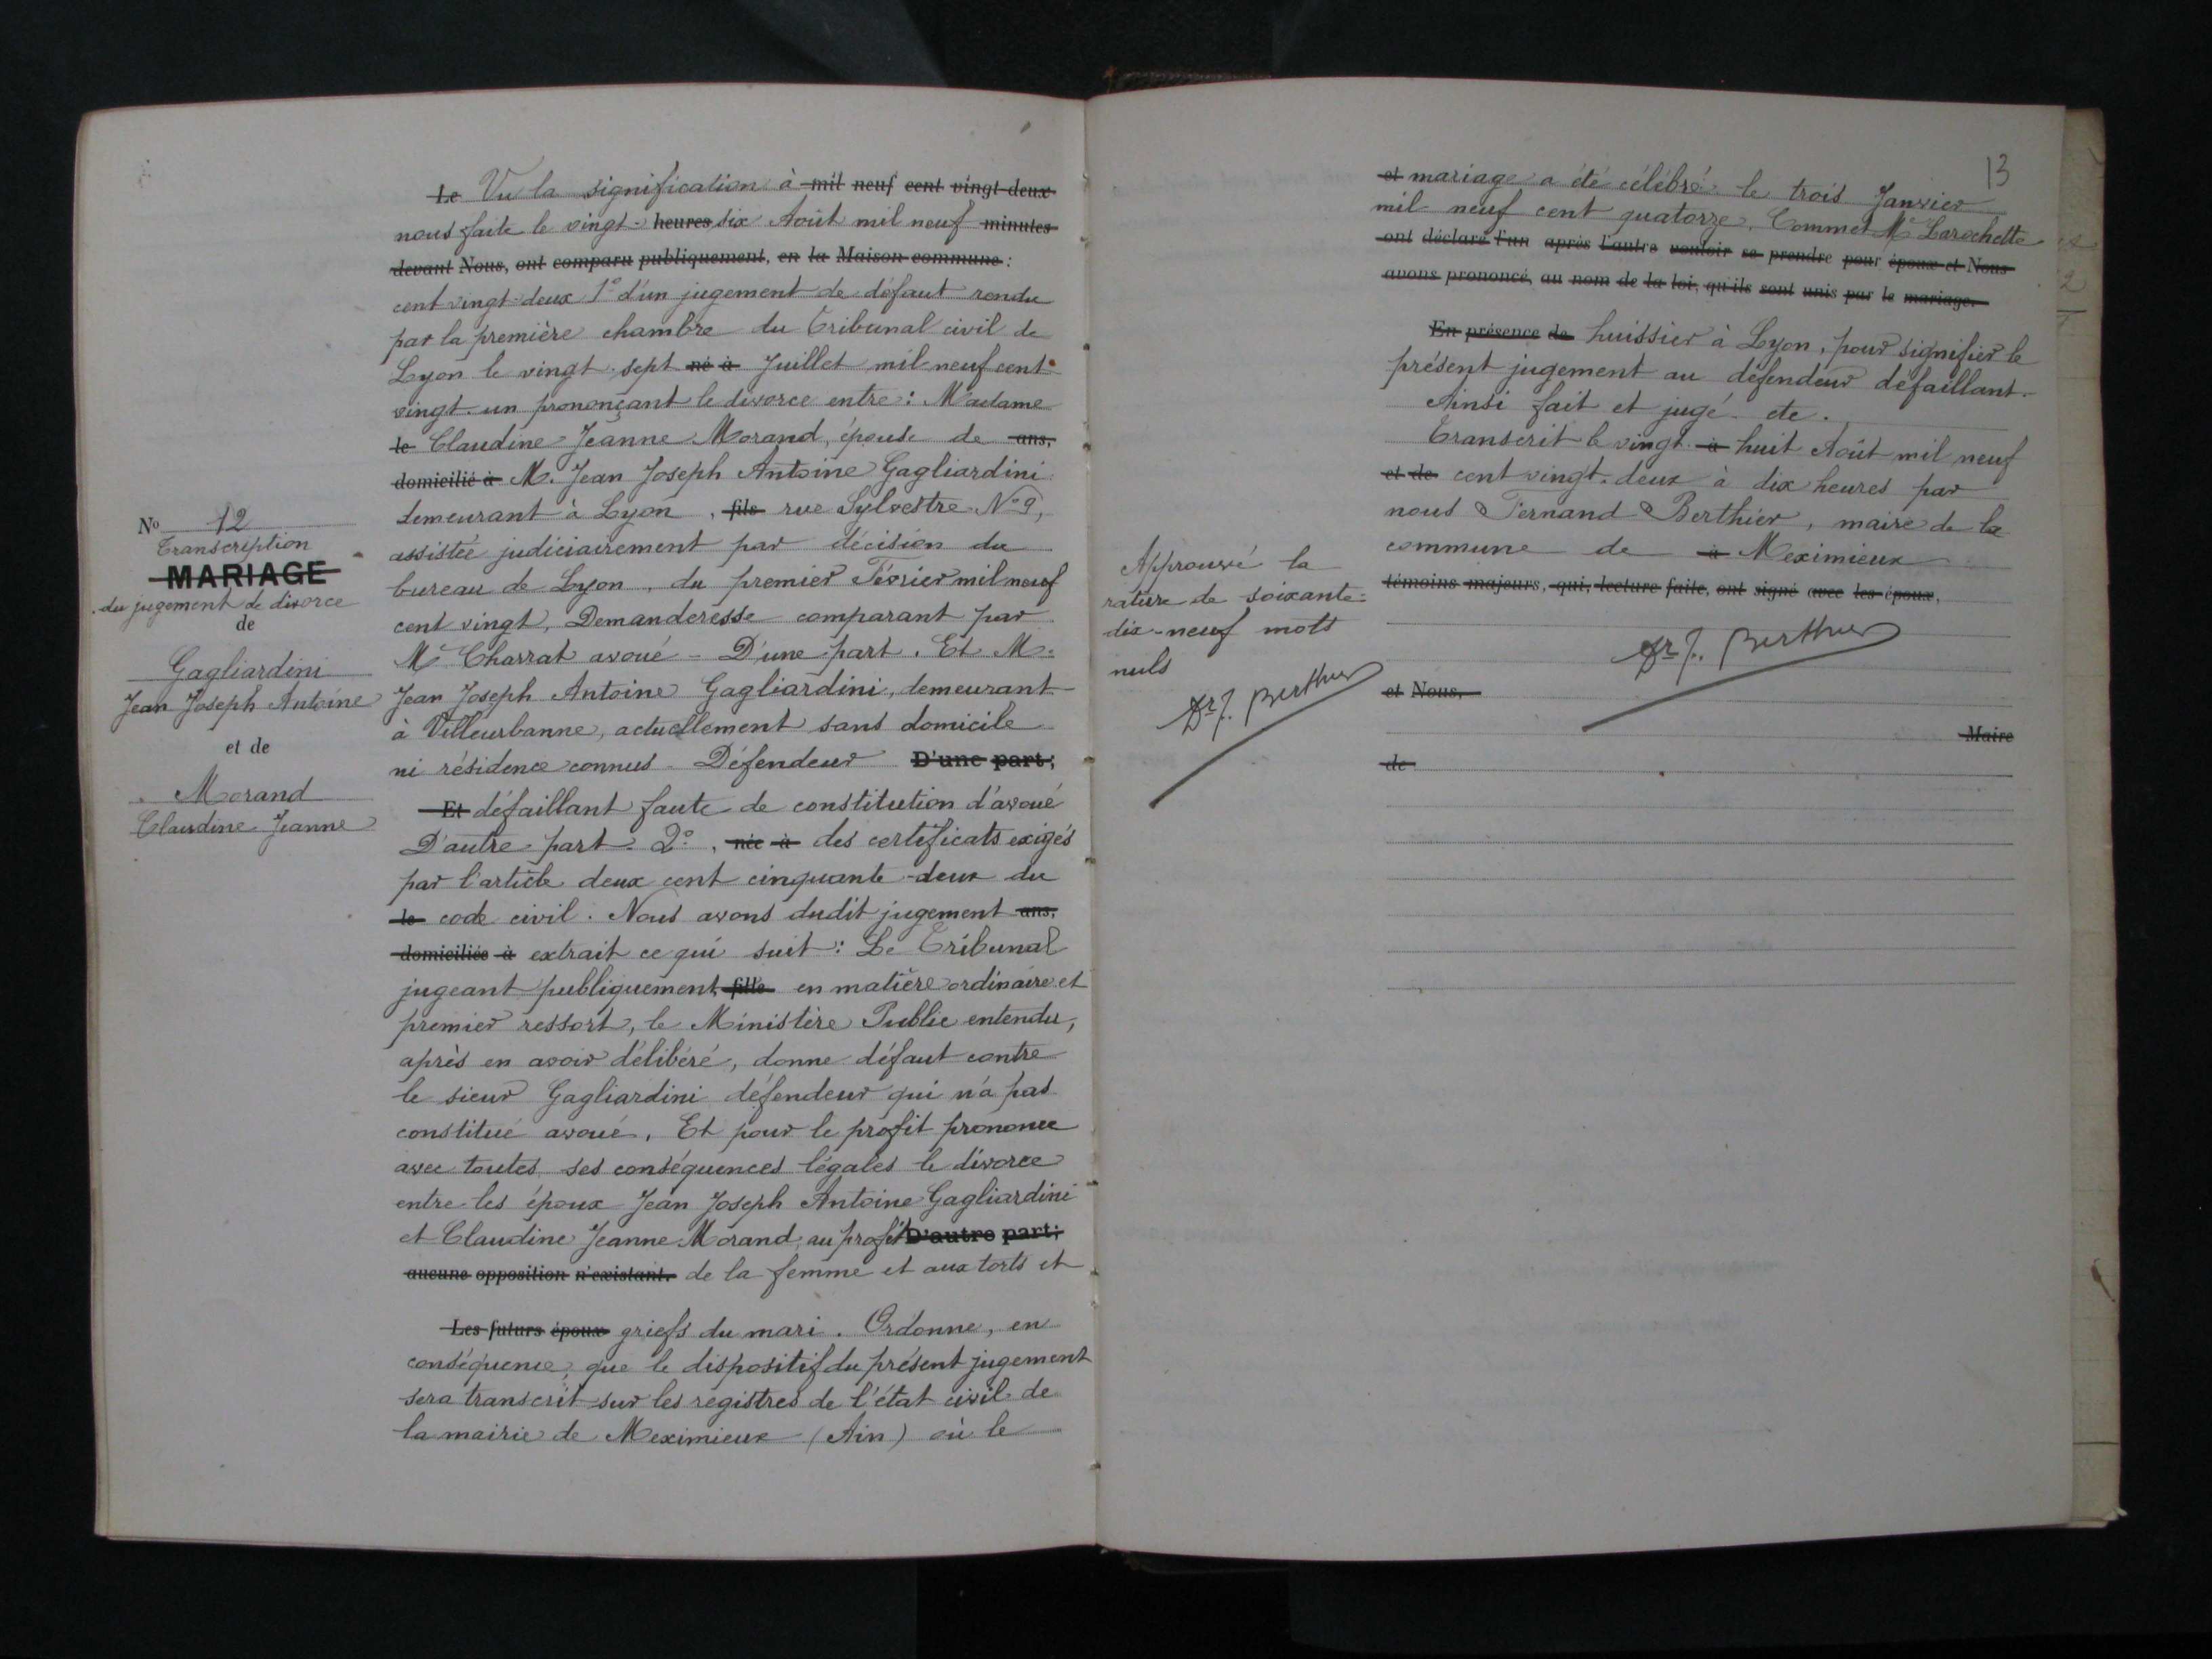 N° 12
Transcription
MARIAGE
du jugement de divorce
de
Gagliardini
Jean Joseph Antoine
et de
Morand
Claudine Jeanne
Le Vu la signification à mil neuf cent vingt-deux
nous faite le vingt- heures six Août mil neuf minutes
devant Nous, ont comparu publiquement, en la Maison commune :
cent vingt-deux 1° d'un jugement de défaut rendu
par la première chambre du Tribunal civil de
Lyon le vingt-sept né à Juillet mil neuf cent
vingt-un prononçant le divorce entre : Madame
le Claudine Jeanne Morand, épouse de ans,
domicilié à M. Jean Joseph Antoine Gagliardini
demeurant à Lyon, fils rue Sylvestre N° 9,
assistée judiciairement par décision du
bureau de Lyon, du premier Février mil neuf
cent vingt, Demanderesse comparant par
Me Charrat avoué - D'une part. Et M.
Jean Joseph Antoine Gagliardini, demeurant
à Villeurbanne, actuellement sans domicile
ni résidence connus. Défendeur D'une part;
Et défaillant faute de constitution d'avoué
D'autre part. 2°, née à des certificats exigés
par l'article deux cent cinquante-deux du
le code civil. Nous avons dudit jugement ans,
domiciliée à extrait ce qui suit : Le Tribunal
jugeant publiquement, fille en matière ordinaire et
premier ressort, le Ministère Public entendu,
après en avoir délibéré, donne défaut contre
le sieur Gagliardini défendeur qui n'a pas
constitué avoué. Et pour le profit prononce
avec toutes ses conséquences légales le divorce
entre les époux Jean Joseph Antoine Gagliardini
et Claudine Jeanne Morand, au profit D'autre part;
aucune opposition n'existant. de la femme et aux torts et
Les futurs époux griefs du mari. Ordonne, en
conséquence, que le dispositif du présent jugement
sera transcrit sur les registres de l'état civil de
la mairie de Meximieux (Ain) où le
13
et mariage a été célébré le trois Janvier
mil neuf cent quatorze. Commet Me Larochette
ont déclaré l'un après l'autre vouloir se prendre pour époux et Nous
avons prononcé, au nom de la loi, qu'ils sont unis par le mariage.
En présence de huissier à Lyon, pour signifier le
présent jugement au défendeur défaillant.
Ainsi fait et jugé. etc.
Transcrit le vingt- à huit Août mil neuf
et de cent vingt-deux à dix heures par
nous Fernand Berthier, maire de la
commune de à Meximieux
témoins majeurs, qui, lecture faite, ont signé avec les époux,
Dr F. Berthier
et Nous,
Maire
de
Approuvé la
rature de soixante-
dix-neuf mots
nuls
Dr F. Berthier